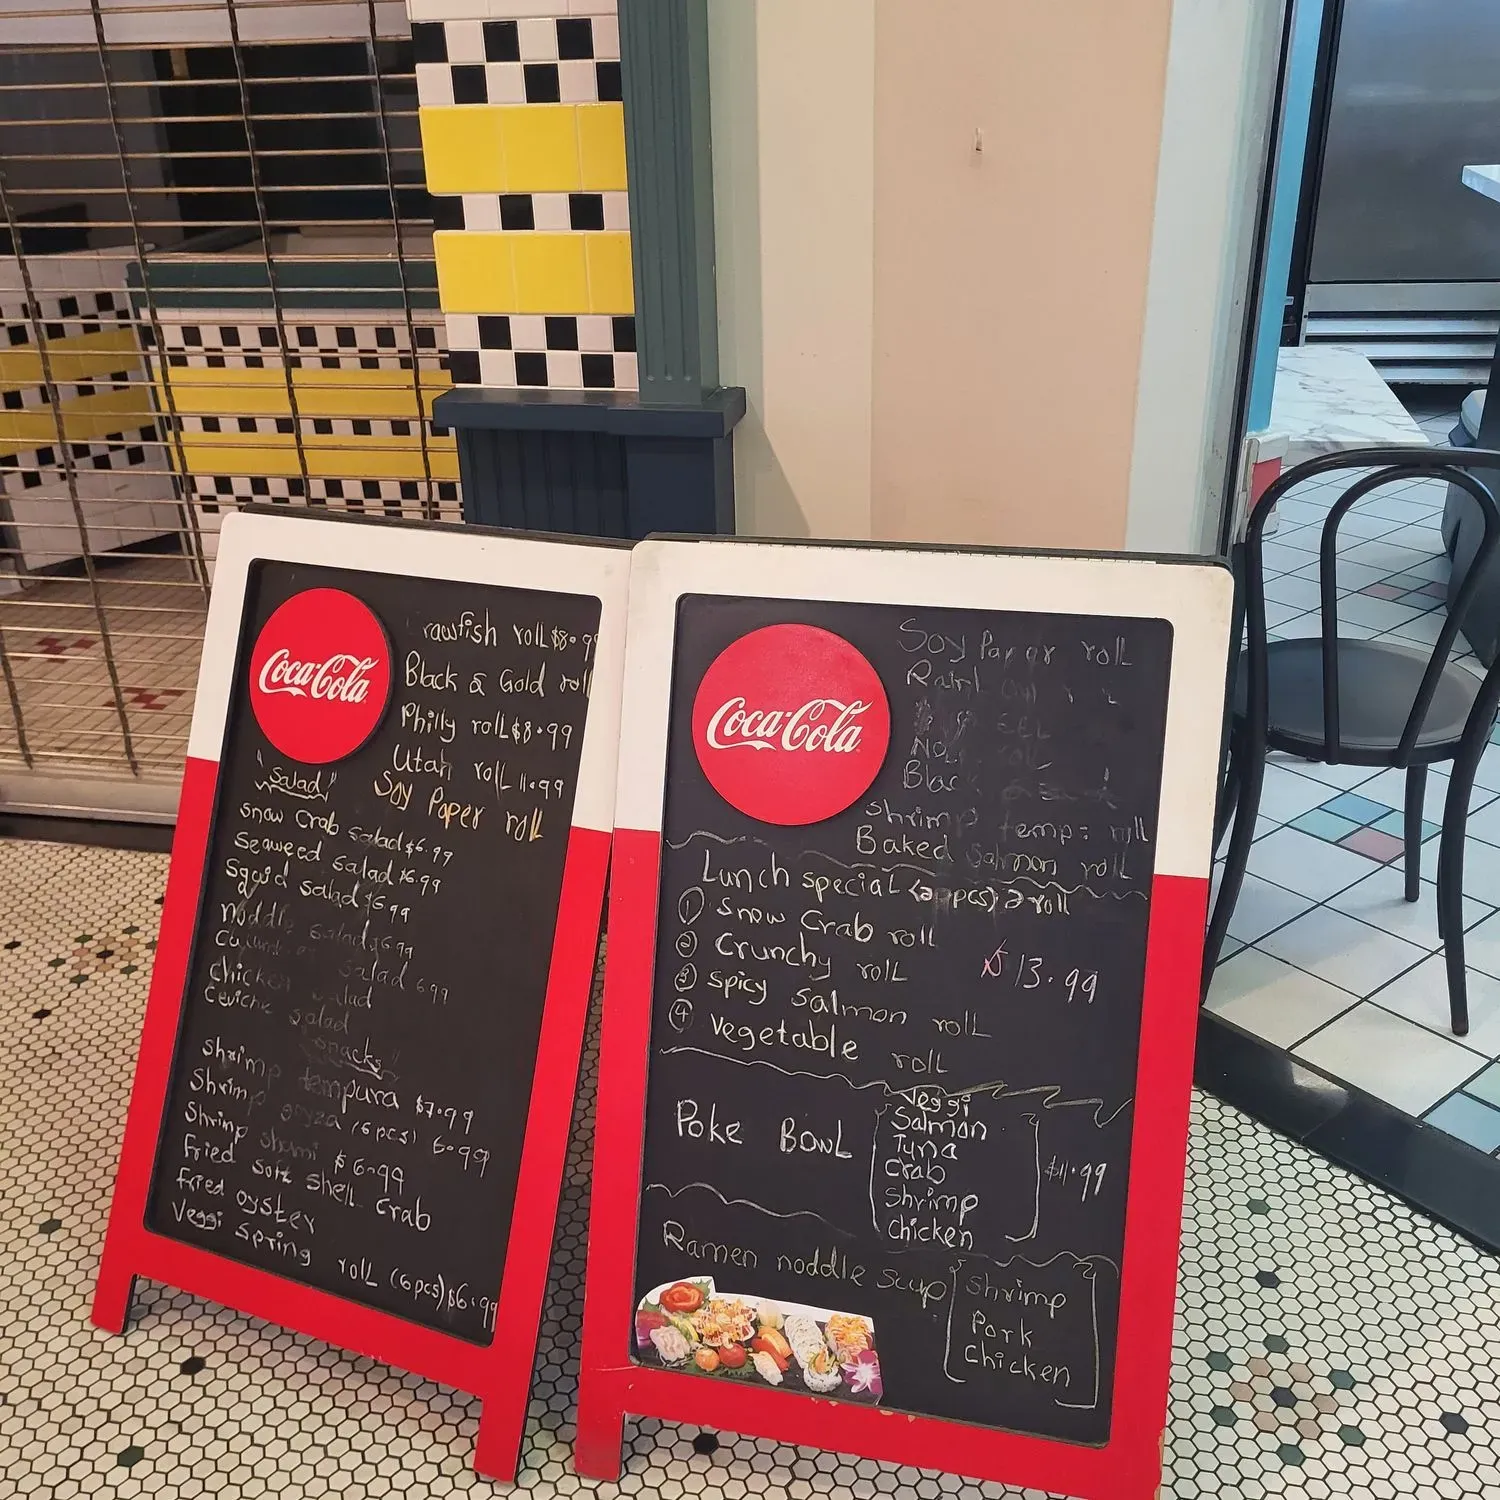 Coca-Cola
rawfish roll $8.99
Black & Gold roll
Philly roll $8.99
Utah roll 11.99
Soy Paper roll
"Salad"
snow crab salad $6.99
seaweed salad $6.99
Sqgid salad $6.99
noddle salad $6.99
salad 6.99
chicken salad
Ceviche salad
snacks"
shrimp tempura $7.99
Shrimp gyoza (6 pcs) 6.99
Shrimp shumi $6.99
Fried soft shell crab
Fried oyster
Veggi spring roll (6 pcs) $6.99
Coca-Cola
Soy Paper roll
Black
shrimp temp: roll
Baked salmon roll
Lunch special pcs) 2 roll
① Snow Crab roll
② Crunchy roll
$13.99
③ spicy salmon roll
④ vegetable roll
Poke BOWL
Veggi
Salmon
Tuna
Crab
Shrimp
Chicken
$11.99
Ramen noddle soup
Shrimp
Pork
Chicken